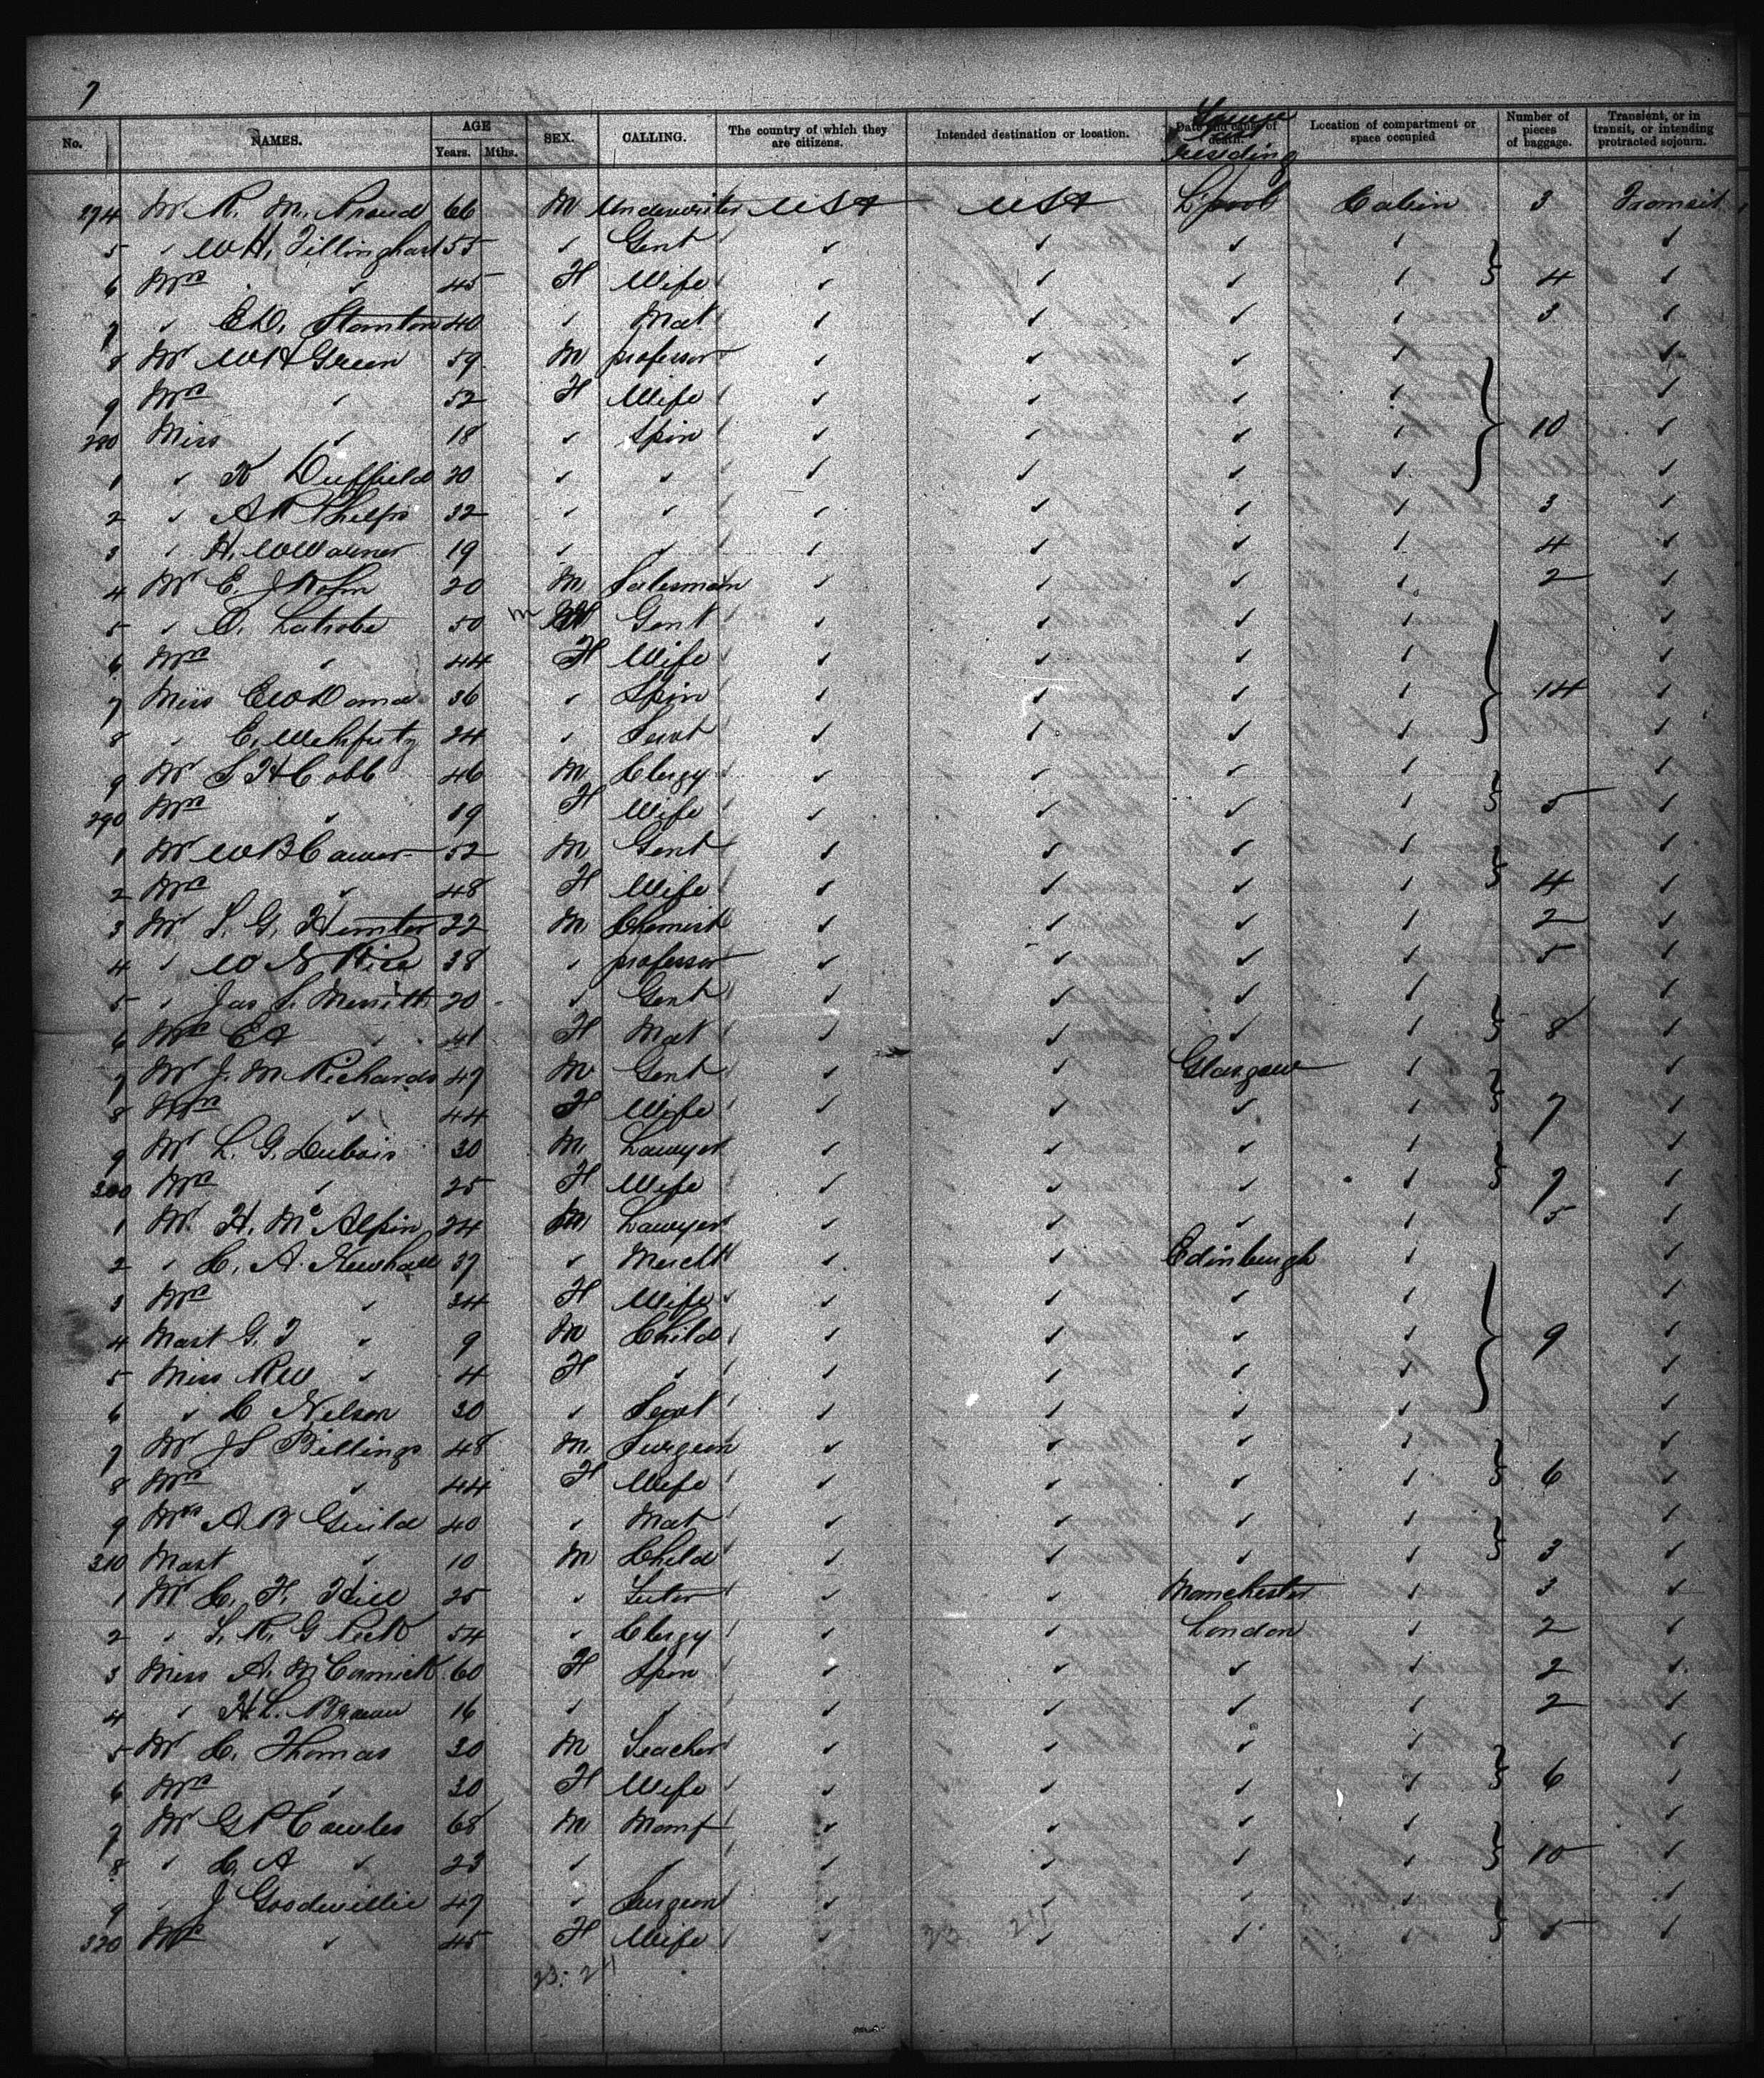 7
No. NAMES. AGE Years. Mths. SEX. CALLING. The country of which they are citizens. Intended destination or location. Date and cause of death. residing Location of compartment or space occupied Number of pieces of baggage. Transient, or in transit, or intending protracted sojourn.
274 Mr R. M. Proud 66 M Underwriter USA USA L'pool Cabin 3 Transit
5 " W H. Tillinghast 55 " Gent ✓ ✓ ✓ ✓ ✓
6 Mrs " 45 F Wife ✓ ✓ ✓ ✓ 4 ✓
7 " E D. Stanton 40 " Mat ✓ ✓ ✓ ✓ 3 ✓
8 Mr W H Green 59 M professor ✓ ✓ ✓ ✓ ✓
9 Mrs " 52 F Wife ✓ ✓ ✓ ✓ ✓
280 Miss " 18 " Spin ✓ ✓ ✓ ✓ 10 ✓
1 " K Duffield 20 " " ✓ ✓ ✓ ✓ ✓
2 " A R Phelps 32 " " ✓ ✓ ✓ ✓ 3 ✓
3 " H. W Warner 19 " " ✓ ✓ ✓ ✓ 4 ✓
4 Mr E. J 20 M Salesman ✓ ✓ ✓ ✓ 2 ✓
5 " O. Latrobe 50 m Gent ✓ ✓ ✓ ✓ ✓
6 Mrs " 44 F Wife ✓ ✓ ✓ ✓ ✓
7 Miss E W Dana 36 " Spin ✓ ✓ ✓ ✓ 14 ✓
8 " E. 24 " Servt ✓ ✓ ✓ ✓ ✓
9 Mr S H Cobb 46 M Clergy ✓ ✓ ✓ ✓ ✓
290 Mrs " 19 F Wife ✓ ✓ ✓ ✓ 5 ✓
1 Mr W B 52 M Gent ✓ ✓ ✓ ✓ ✓
2 Mrs " 48 F Wife ✓ ✓ ✓ ✓ 4 ✓
3 Mr S. G. Hunter 22 M Chemist ✓ ✓ ✓ ✓ 2 ✓
4 " W N Rice 38 " professor ✓ ✓ ✓ ✓ 5 ✓
5 " Jas S. Merritt 20 " Gent ✓ ✓ ✓ ✓ ✓
6 Mrs E A " 41 F Mat ✓ ✓ ✓ ✓ 8 ✓
7 Mr J. M Richards 47 M Gent ✓ ✓ Glasgow ✓ ✓
8 Mrs " 44 F Wife ✓ ✓ ✓ ✓ 7 ✓
9 Mr L. G. Dubois 30 M Lawyer ✓ ✓ ✓ ✓ ✓
300 Mrs " 25 F Wife ✓ ✓ ✓ ✓ 7 ✓
1 Mr H. McAlpin 24 M Lawyer ✓ ✓ ✓ ✓ 5 ✓
2 " C. A. Newhall 37 " Mercht ✓ ✓ Edinburgh ✓ ✓
3 Mrs " 34 F Wife ✓ ✓ ✓ ✓ ✓
4 Mast G. T " 9 M Child ✓ ✓ ✓ ✓ 9 ✓
5 Miss R W " 4 F " ✓ ✓ ✓ ✓ ✓
6 " C Nelson 30 " Servt ✓ ✓ ✓ ✓ ✓
7 Mr J S Billings 48 M Surgeon ✓ ✓ ✓ ✓ ✓
8 Mrs " 44 F Wife ✓ ✓ ✓ ✓ 6 ✓
9 Mrs A B Guild 40 " Mat ✓ ✓ ✓ ✓ ✓
310 Mast " 10 M Child ✓ ✓ ✓ ✓ 3 ✓
1 Mr C. F. Hill 25 " Tutor ✓ ✓ Manchester ✓ 3 ✓
2 " S. R. G Peck 54 " Clergy ✓ ✓ London ✓ 2 ✓
3 Miss A. McCormick 60 F Spin ✓ ✓ ✓ ✓ 2 ✓
4 " H L. Brown 16 " " ✓ ✓ ✓ ✓ 2 ✓
5 Mr C. Thomas 30 M Teacher ✓ ✓ ✓ ✓ ✓
6 Mrs " 30 F Wife ✓ ✓ ✓ ✓ 6 ✓
7 Mr G P Cowles 68 M Manf ✓ ✓ ✓ ✓ ✓
8 " C. A " 23 " " ✓ ✓ ✓ ✓ 10 ✓
9 " J Goodwillie 47 " Surgeon ✓ ✓ ✓ ✓ ✓
320 Mrs " 45 F Wife ✓ ✓ ✓ ✓ 5 ✓
23. 24